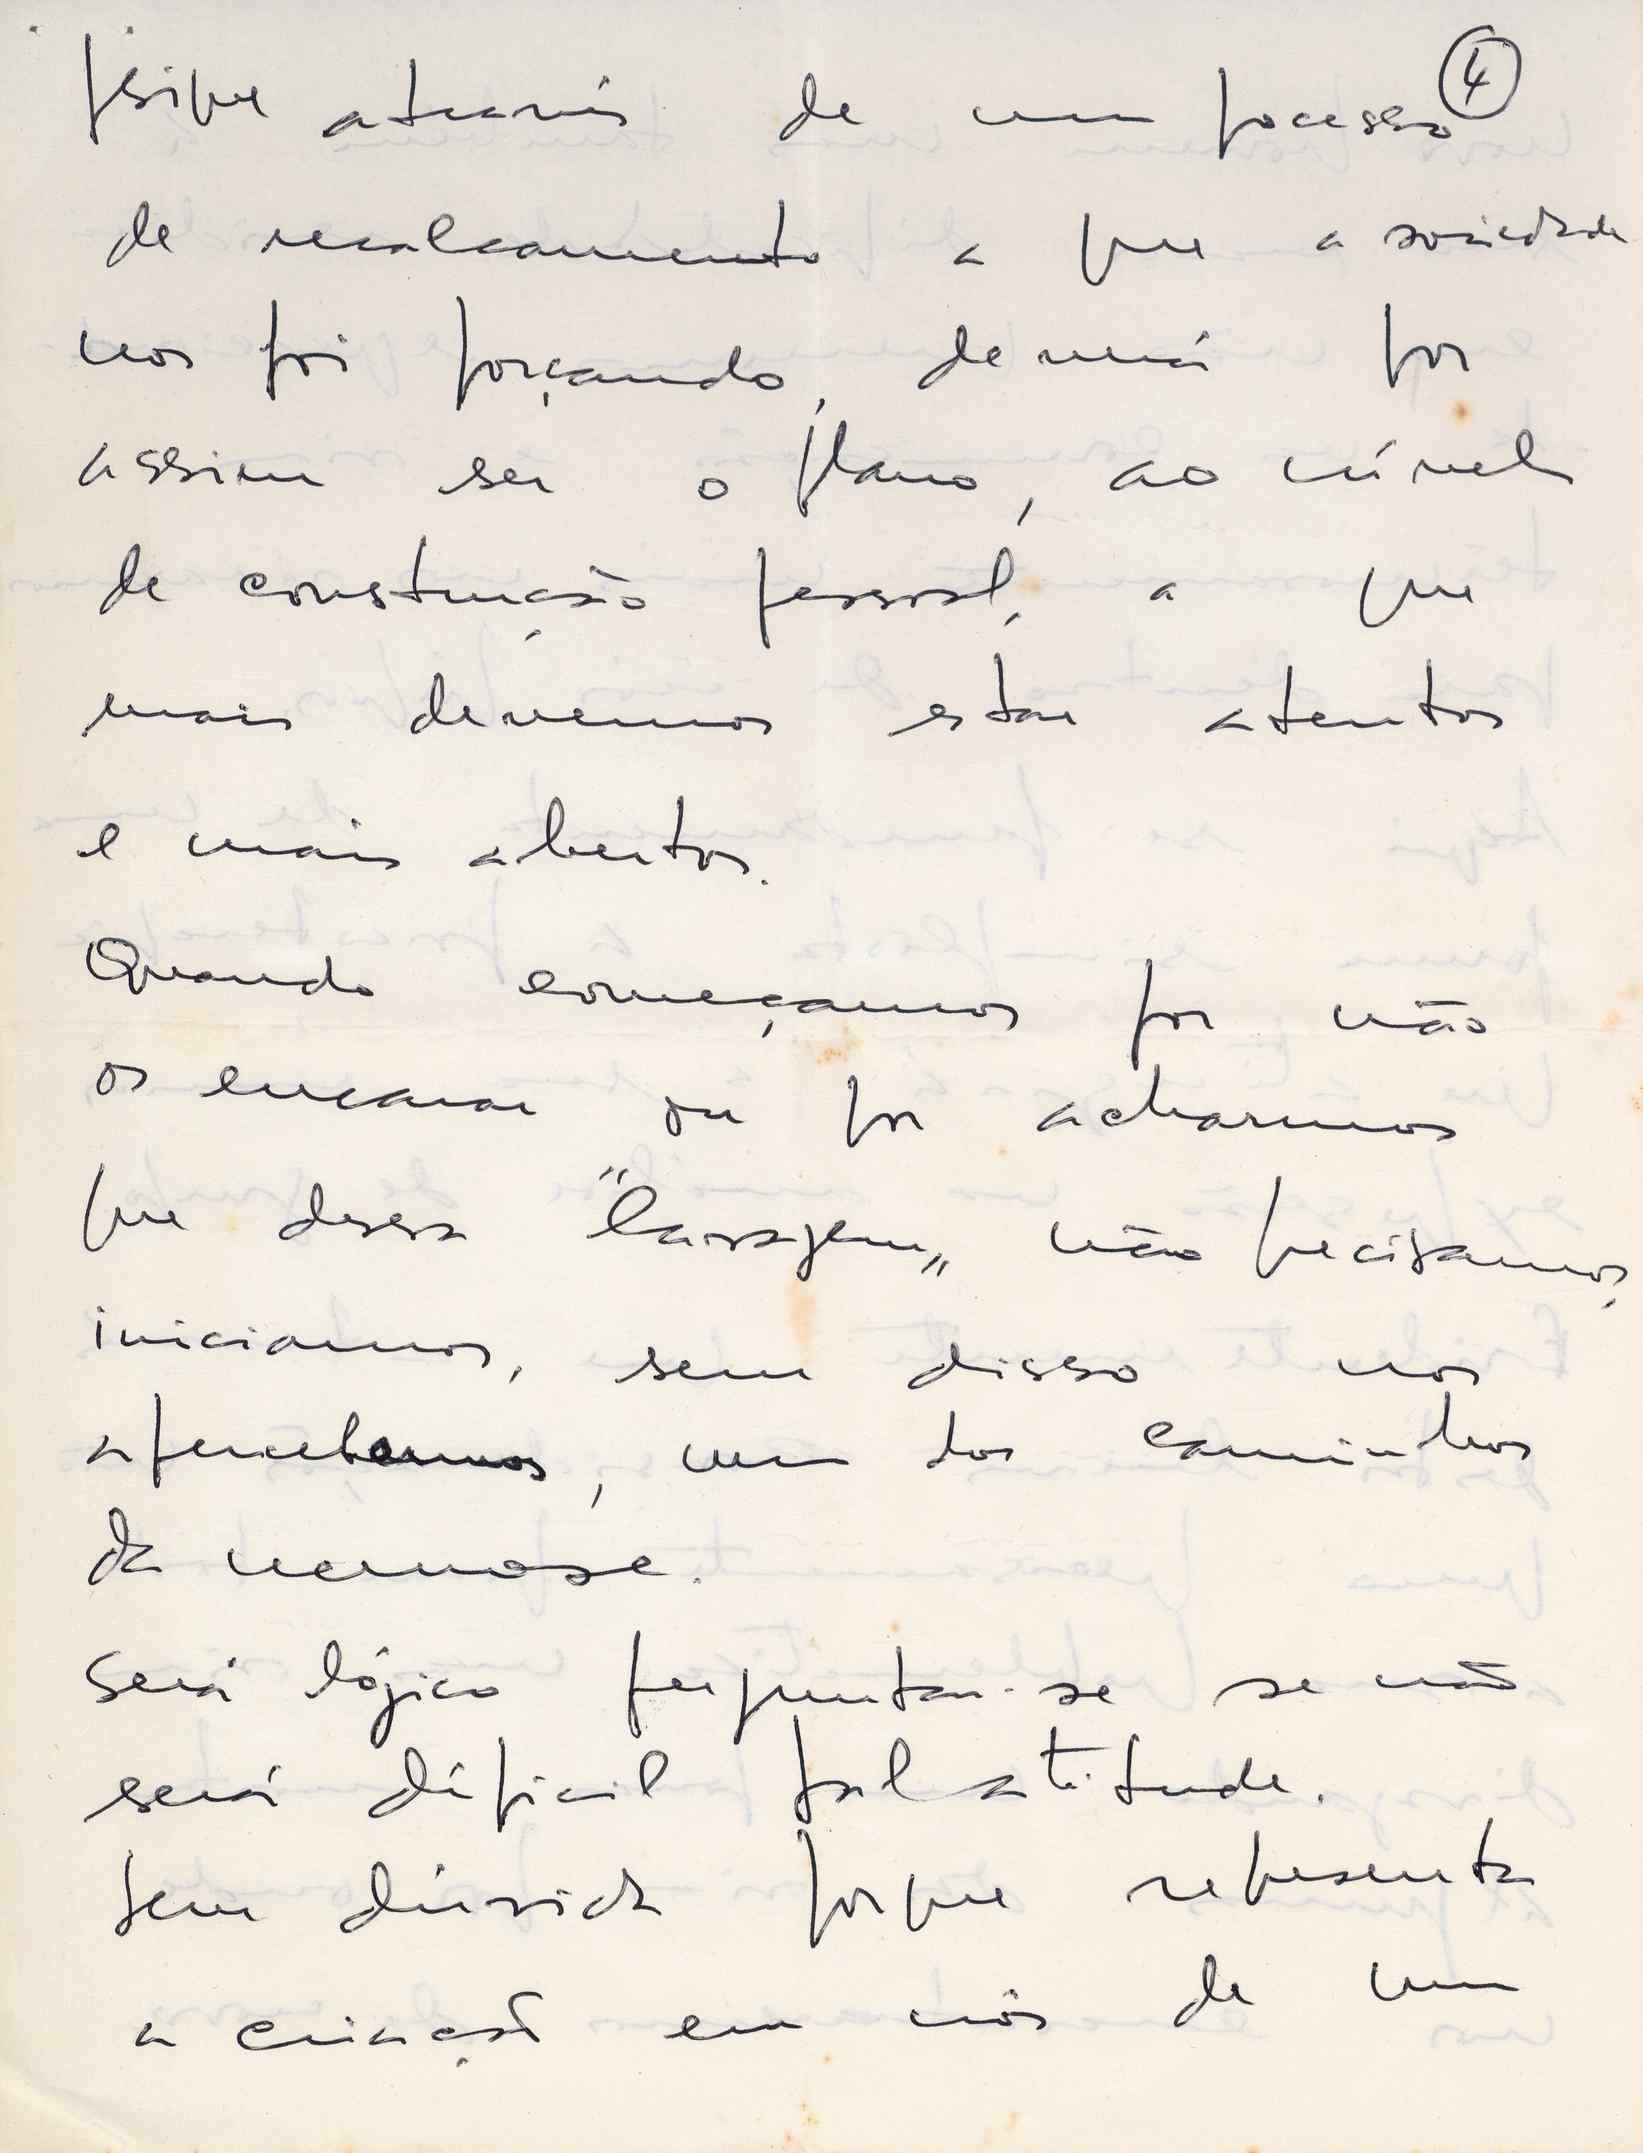 4
psique através de um processo
de recalcamento a que a sociedade
nos foi forçando, deverá por
assim ser o plano, ao nível
de construção pessoal, a que
mais devemos estar atentos
e mais abertos.
Quando começamos por não
os encarar ou por acharmos
que dessa "lavagem" não precisamos,
iniciamos, sem disso nos
apercebermos, um dos caminhos
da nevrose.
Será lógico perguntar-se se não
será difícil tal atitude.
Sem dúvida porque representa
a criação em nós de um